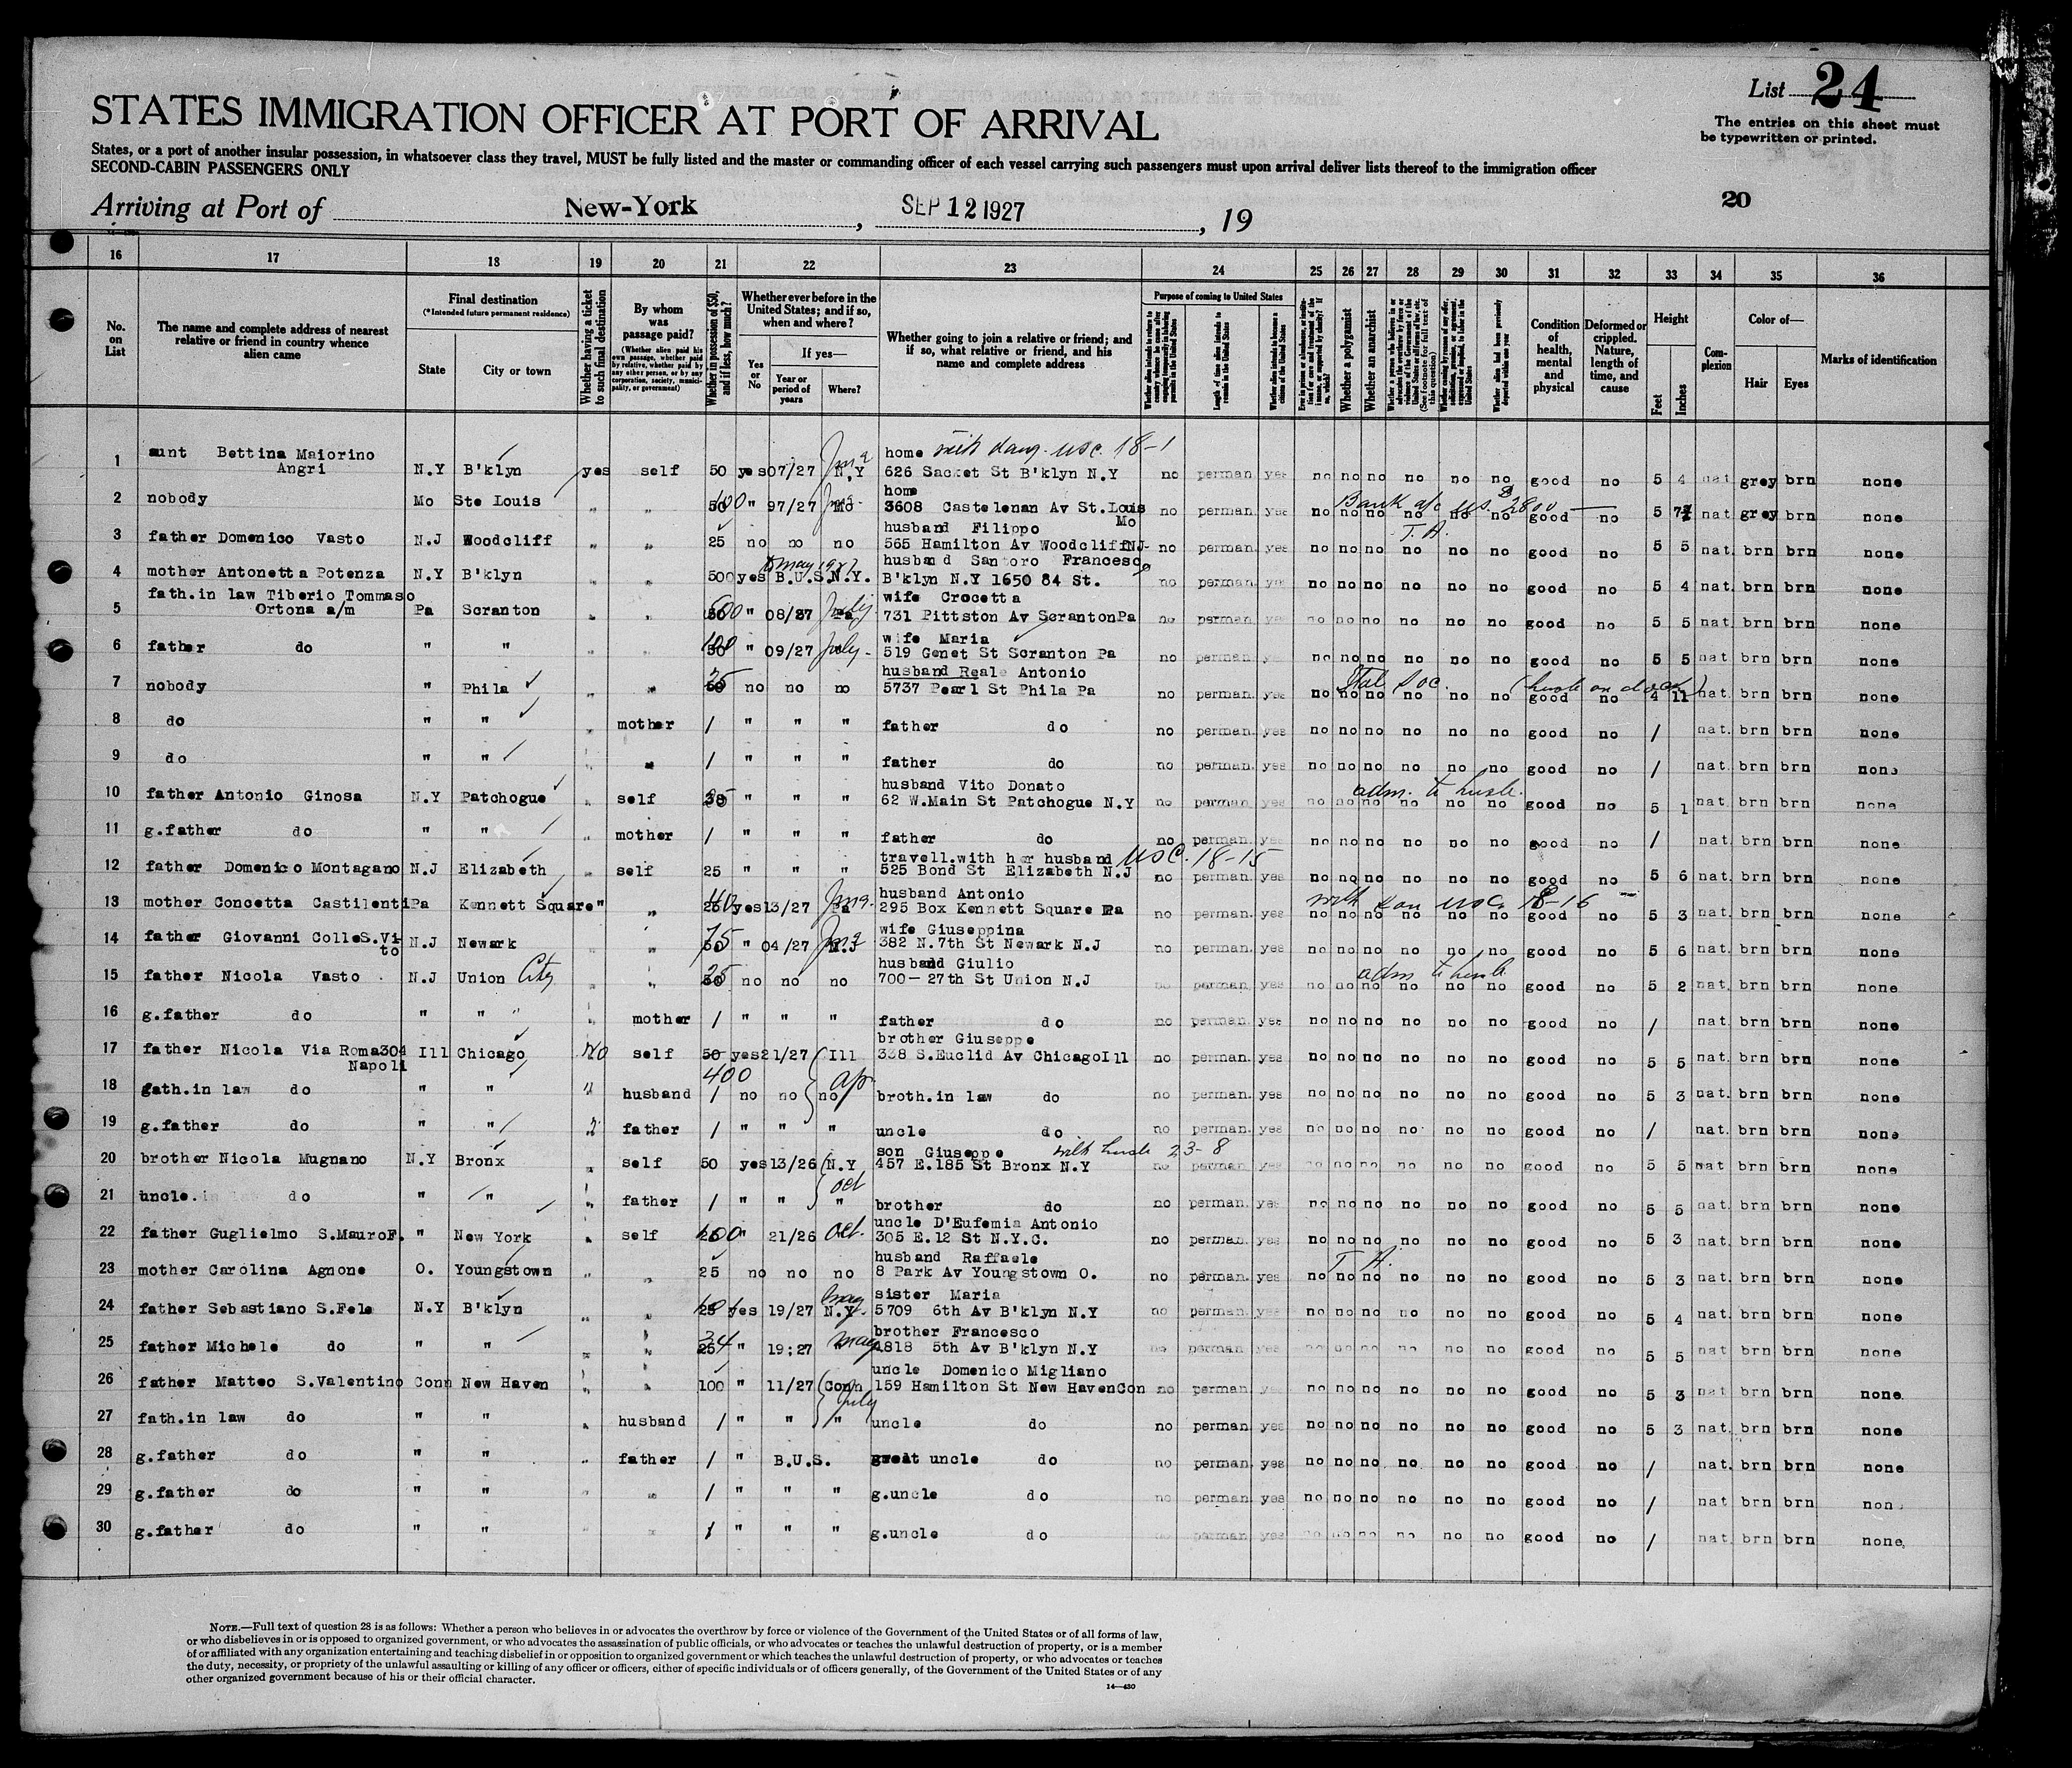 List 24
The entries on this sheet must
be typewritten or printed.
STATES IMMIGRATION OFFICER AT PORT OF ARRIVAL
States, or a port of another insular possession, in whatsoever class they travel, MUST be fully listed and the master or commanding officer of each vessel carrying such passengers must upon arrival deliver lists thereof to the immigration officer
SECOND-CABIN PASSENGERS ONLY
Arriving at Port of New-York, SEP 12 1927, 19 20
16 17 18 19 20 21 22 23 24 25 26 27 28 29 30 31 32 33 34 35 36
No. on List
The name and complete address of nearest relative or friend in country whence alien came
Final destination (*Intended future permanent residence)
State
City or town
Whether having a ticket to such final destination
By whom was passage paid?
(Whether alien paid his own passage, whether paid by relative, whether paid by any other person, or by any corporation, society, municipality, or government)
Whether in possession of $50, and if less, how much?
Whether ever before in the United States; and if so, when and where?
Yes or No
If yes—
Year or period of years
Where?
Whether going to join a relative or friend; and if so, what relative or friend, and his name and complete address
Purpose of coming to United States
Length of time alien intends to remain in the United States
Whether alien intends to become a citizen of the United States
Whether a polygamist
Whether an anarchist
Condition of health, mental and physical
Deformed or crippled. Nature, length of time, and cause
Height
Feet
Inches
Complexion
Color of—
Hair
Eyes
Marks of identification
1 aunt Bettina Maiorino Angri N.Y B'klyn yes self 50 yes 07/27 N.Y home with daug. USC. 18-1 626 Sacket St B'klyn N.Y no perman yes no no no no no no good no 5 4 nat grey brn none
2 nobody Mo Ste Louis " " 100 " 97/27 Mo home 3608 Castelenan Av St.Louis Mo no perman. yes no no no no no no Bank a/c US $2800 good no 5 7 nat grey brn none
3 father Domenico Vasto N.J Woodcliff " " 25 no no no husband Filippo 565 Hamilton Av Woodcliff NJ no perman. yes no no no no no no T.A. good no 5 5 nat. brn brn none
4 mother Antonetta Potenza N.Y B'klyn " " 500 yes May 1927 B.U.S. N.Y. husband Santoro Francesco B'klyn N.Y 1650 84 St. no perman. yes no no no no no no good no 5 4 nat. brn brn none
5 fath.in law Tiberio Tommaso Ortona a/m Pa Scranton " " " 08/27 July Pa wife Crocetta 731 Pittston Av Scranton Pa no perman. yes no no no no no no good no 5 5 nat. brn brn none
6 father do " " " " 100 " 09/27 July wife Maria 519 Genet St Scranton Pa no perman. yes no no no no no no good no 5 5 nat brn brn none
7 nobody " Phila " " no no no husband Reale Antonio 5737 Pearl St Phila Pa no perman. yes no no no no no no Ital Soc. good no 4 11 nat. brn brn none
8 do " " " mother / " " " father do no perman. yes no no no no no no good no / nat. brn brn none
9 do " " " " / " " " father do no perman. yes no no no no no no good no / nat. brn brn none
10 father Antonio Ginosa N.Y Patchogue " self " " " husband Vito Donato 62 W.Main St Patchogue N.Y no perman yes no no no no no no adm. to husb. good no 5 1 nat. brn brn none
11 g.father do " " " mother / " " " father do no perman. yes no no no no no no good no / nat. brn brn none
12 father Domenico Montagano N.J Elizabeth " self 25 " " " travell.with her husband USC. 18-15 525 Bond St Elizabeth N.J no perman. yes no no no no no no good no 5 6 nat. brn brn none
13 mother Concetta Castilenti Pa Kennett Square " " yes 13/27 Pa husband Antonio 295 Box Kennett Square Pa no perman. yes no no no no no no with son USC 18-16 good no 5 3 nat. brn brn none
14 father Giovanni Colle S.Vito N.J Newark " " 75 " 04/27 N.J wife Giuseppina 382 N.7th St Newark N.J no perman. yes no no no no no no good no 5 6 nat. brn brn none
15 father Nicola Vasto N.J Union City " " no no no husband Giulio 700- 27th St Union N.J no perman yes no no no no no no adm to husb good no 5 2 nat. brn brn none
16 g.father do " " " mother / " " " father do no perman. yes no no no no no no good no / nat. brn brn none
17 father Nicola Via Roma 304 Napoli Ill Chicago No self 50 400 yes 21/27 Ill brother Giuseppe 338 S.Euclid Av Chicago Ill no perman. yes no no no no no no good no 5 5 nat. brn brn none
18 gath.in law do " " " husband / no no no Ap. broth.in law do no perman. yes no no no no no no good no 5 3 nat. brn brn none
19 g.father do " " " father / " " " uncle do no perman. yes no no no no no no good no / nat. brn brn none
20 brother Nicola Mugnano N.Y Bronx " self 50 yes 13/26 N.Y son Giuseppe with husb 23-8 457 E.185 St Bronx N.Y no perman yes no no no no no no good no 5 5 nat brn brn none
21 uncle. do " " " father / " " Oct " brother do no perman. yes no no no no no no good no 5 5 nat brn brn none
22 father Guglielmo S.Mauro F. " New York " self " 21/26 Oct. uncle D'Eufemia Antonio 305 E.12 St N.Y.C. no perman. yes no no no no no no good no 5 3 nat. brn brn none
23 mother Carolina Agnone O. Youngstown " " 25 no no no husband Raffaele 8 Park Av Youngstown O. no perman. yes no no no no no no T.A. good no 5 3 nat. brn brn none
24 father Sebastiano S.Fele N.Y B'klyn " " yes 19/27 May N.Y. sister Maria 5709 6th Av B'klyn N.Y no perman yes no no no no no no good no 5 4 nat. brn brn none
25 father Michele do " " " " 34 " 19:27 May brother Francesco 4818 5th Av B'klyn N.Y no perman yes no no no no no no good no 5 5 nat brn brn none
26 father Matteo S.Valentino Conn New Haven " " 100 " 11/27 Conn uncle Domenico Migliano 159 Hamilton St New Haven Con no perman yes no no no no no no good no 5 3 nat brn brn none.
27 fath.in law do " " " husband / " " July " uncle do no perman yes no no no no no no good no 5 3 nat. brn brn none
28 g.father do " " " father / " B.U.S. great uncle do no perman yes no no no no no no good no / nat. brn brn none
29 g.father do " " " " / " " " g.uncle do no perman yes no no no no no no good no / nat brn brn non
30 g.father do " " " " / " " " g.uncle do perman yes no no no no no no good no / nat brn brn none.
NOTE.—Full text of question 28 is as follows: Whether a person who believes in or advocates the overthrow by force or violence of the Government of the United States or of all forms of law,
or who disbelieves in or is opposed to organized government, or who advocates the assassination of public officials, or who advocates or teaches the unlawful destruction of property, or is a member
of or affiliated with any organization entertaining and teaching disbelief in or opposition to organized government or which teaches the unlawful destruction of property, or who advocates or teaches
the duty, necessity, or propriety of the unlawful assaulting or killing of any officer or officers, either of specific individuals or of officers generally, of the Government of the United States or of any
other organized government because of his or their official character.
14—430